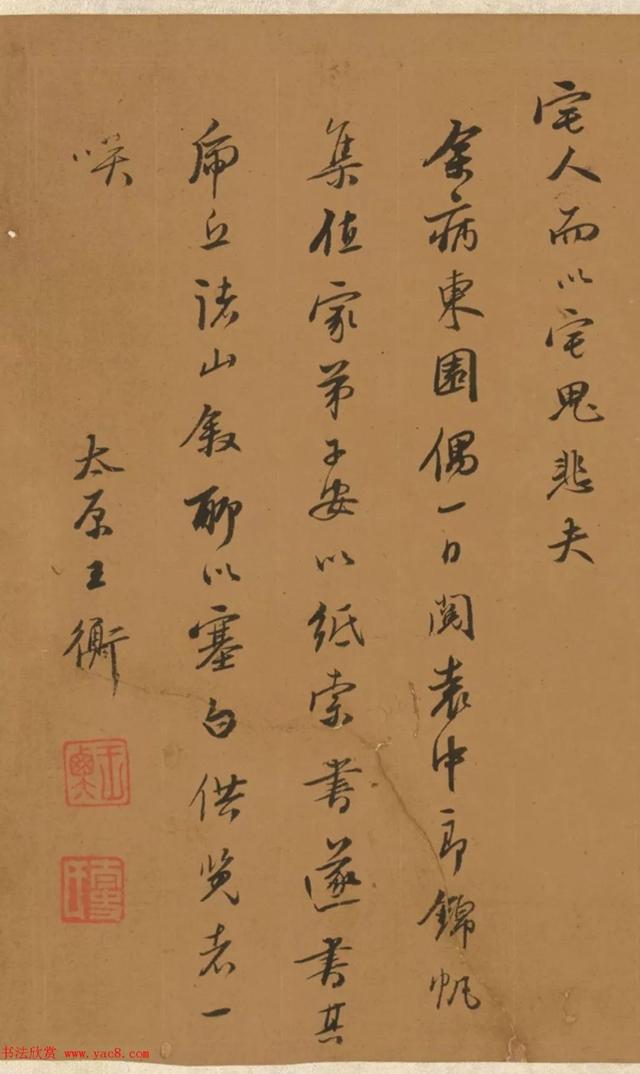 宅人而以宅鬼悲夫
余病東園偶一日閲袁中郎錦帆
集值家弟子安以紙索書遂書其
虎丘諸山叙聊以塞白供览者一
咲
太原王衡
书法欣赏 www.yac8.com